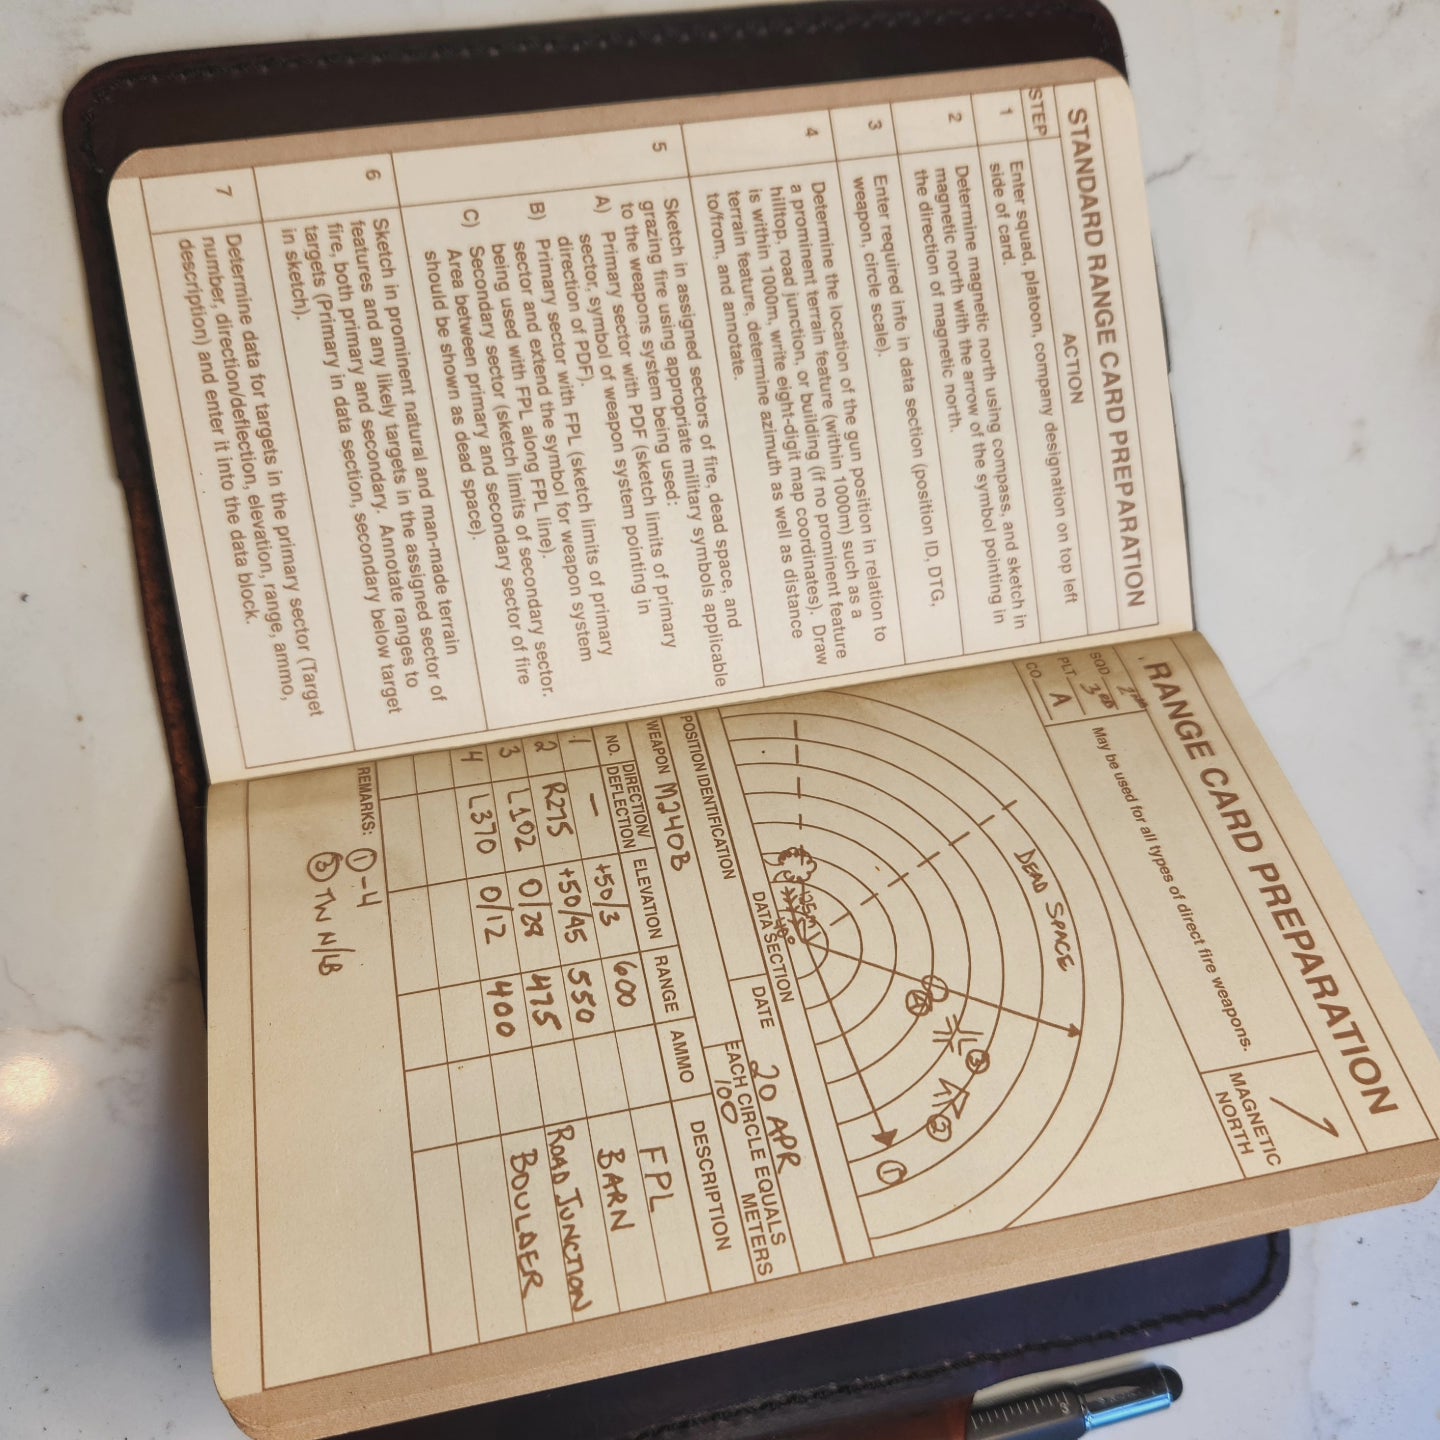 STANDARD RANGE CARD PREPARATION
STEP ACTION
1 Enter squad, platoon, company designation on top left
side of card.
2 Determine magnetic north using compass, and sketch in
magnetic north with the arrow of the symbol pointing in
the direction of magnetic north.
3 Enter required info in data section (position ID, DTG,
weapon, circle scale).
4 Determine the location of the gun position in relation to
a prominent terrain feature (within 1000m) such as a
hilltop, road junction, or building (if no prominent feature
is within 1000m, write eight-digit map coordinates). Draw
terrain feature, determine azimuth as well as distance
to/from, and annotate.
5 Sketch in assigned sectors of fire, dead space, and
grazing fire using appropriate military symbols applicable
to the weapons system being used:
A) Primary sector with PDF (sketch limits of primary
sector, symbol of weapon system pointing in
direction of PDF).
B) Primary sector with FPL (sketch limits of primary
sector and extend the symbol for weapon system
being used with FPL along FPL line).
C) Secondary sector (sketch limits of secondary sector.
Area between primary and secondary sector of fire
should be shown as dead space).
6 Sketch in prominent natural and man-made terrain
features and any likely targets in the assigned sector of
fire, both primary and secondary. Annotate ranges to
targets (Primary in data section, secondary below target
in sketch).
7 Determine data for targets in the primary sector (Target
number, direction/deflection, elevation, range, ammo,
description) and enter it into the data block.
RANGE CARD PREPARATION
SQD 2ND
PLT. 3RD
CO A
May be used for all types of direct fire weapons.
MAGNETIC
NORTH
DEAD SPACE
4
3
2
1
DATA SECTION
POSITION IDENTIFICATION
DATE 20 APR
WEAPON M240B
EACH CIRCLE EQUALS
100 METERS
NO. DIRECTION/ DEFLECTION ELEVATION RANGE AMMO DESCRIPTION
1 — +50/3 600 FPL
2 R275 +50/45 550 BARN
3 L102 0/28 475 ROAD JUNCTION
4 L370 0/12 400 BOULDER
REMARKS: 1 -4
3 TW N/LB